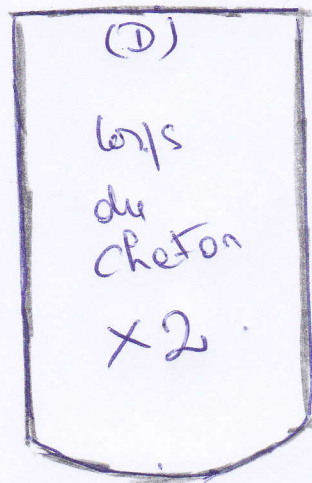 (D)
Corps
du
chaton
X2